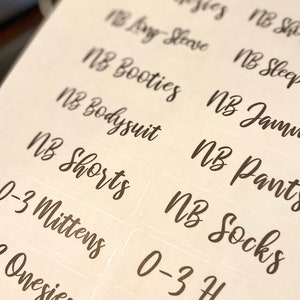 NB Long-Sleeve
NB Booties
NB Bodysuit
NB Shorts
0-3 Mittens
Onesies
NB
NB
NB
NB Pants
NB Socks
0-3